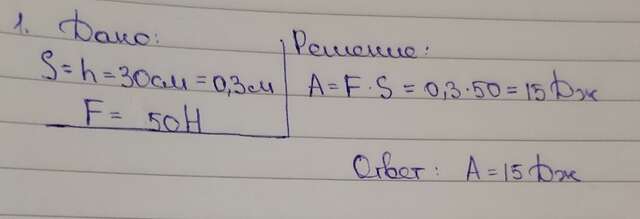 1. Дано:
S=h=30см=0,3м
F= 50Н
Решение:
A=F·S=0,3·50=15Дж
Ответ: A=15Дж